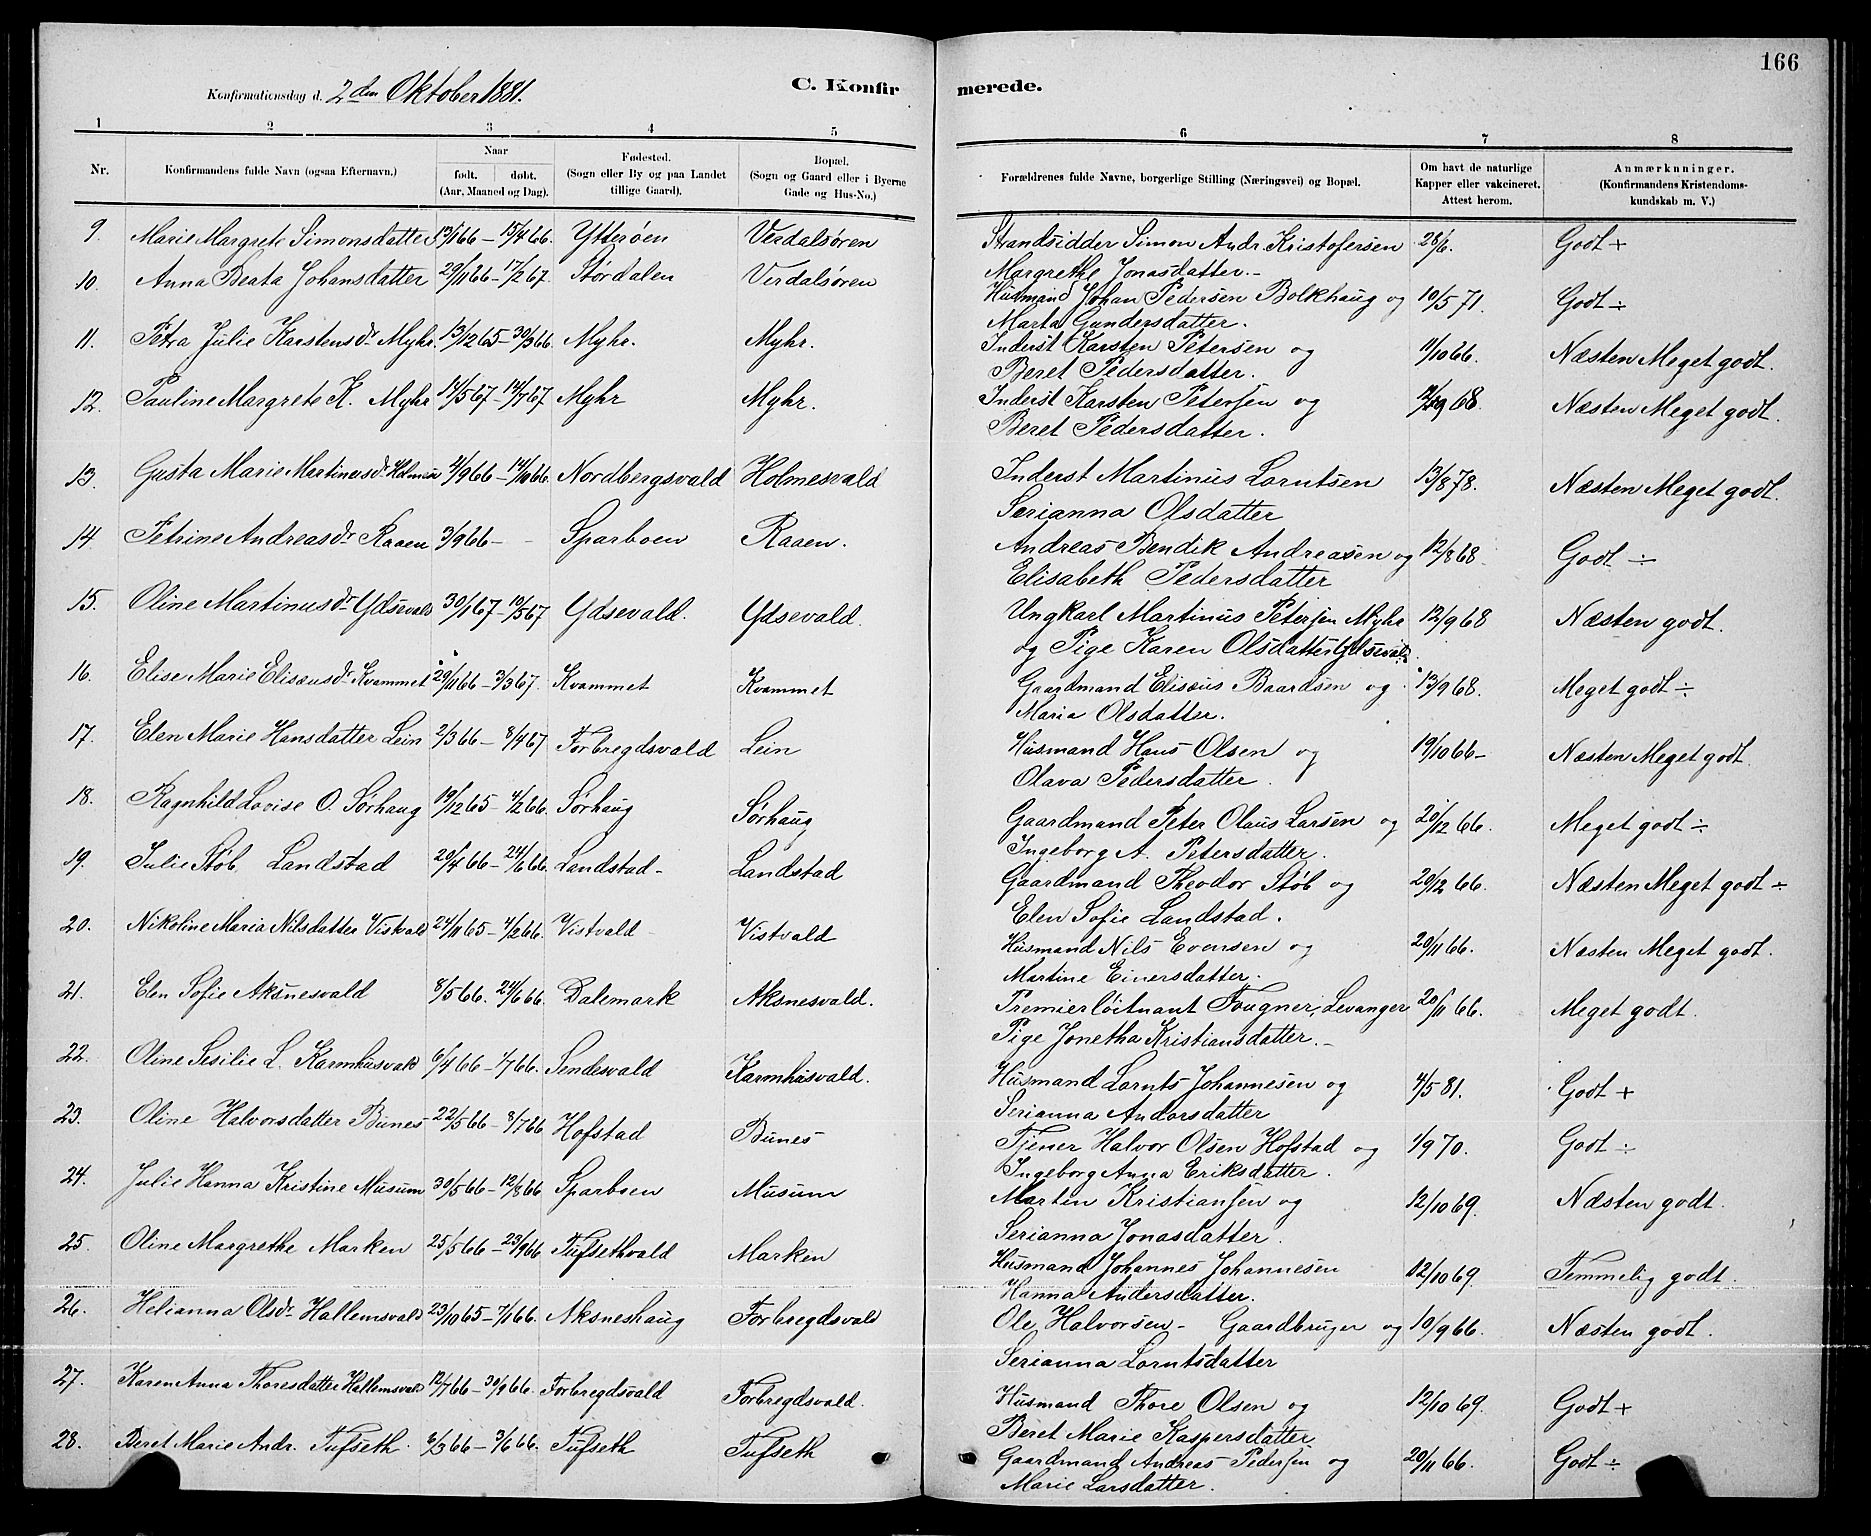 166
Konfirmationsdag d. 2den Oktober 1881.
C. Konfirmerede.
1 2 3 4 5 6 7 8
Nr.
Konfirmandens fulde Navn (ogsaa Efternavn.)
Naar
født. døbt.
(Aar, Maaned og Dag).
Fødested.
(Sogn eller By og paa Landet
tillige Gaard).
Bopæl.
(Sogn og Gaard eller i Byerne
Gade og Hus-No.)
Forældrenes fulde Navne, borgerlige Stilling (Næringsvei) og Bopæl.
Om havt de naturlige
Kapper eller vakcineret.
Attest herom.
Anmærkninger.
(Konfirmandens Kristendoms-
kundskab m. V.)
9. Marie Margrete Simonsdatter 13/1 66 — 15/4 66. Ytterøen Verdalsøren Strandsidder Simon Andr. Kristofersen 28/6. Godt +
Margrethe Jonasdatter.
10. Anna Beata Johansdatter 29/11 66 — 17/2 67. Størdalen Verdalsøren Husmand Johan Pedersen Bolkhaug og 10/5 71. Godt ÷
Marta Gundersdatter.
11. Petra Julie Karstensdr. Myhr. 13/12 65 — 30/3 66. Myhr. Myhr. Inderst Karsten Petersen og 11/10 66. Næsten Meget godt.
Beret Pedersdatter.
12. Pauline Margrete K. Myhr 14/5 67 — 14/7 67 Myhr Myhr. Inderst Karsten Petersen og 9 68. Næsten Meget godt.
Beret Pedersdatter.
13. Gusta Marie Martinusdr. 2/9 66 — 14/10 66. Nordbergsvald Holmesvald Inderst Martinus Lorntsen 13/8 78. Næsten Meget godt.
Serianna Olsdatter
14. Petrine Andreasdr. Raaen 3/9 66 — Sparboen Raaen. Andreas Bendik Andreasen og 12/8 68 Godt ÷
Elisabeth Pedersdatter
15. Oline Martinusdr. Ydsevald 30/1 67 — 19/5 67 Ydsevald. Ydsevald. Ungkarl Martinus Petersen Myhr 12/9 68 Næsten godt.
og Pige Karen Olsdatter Ydsevald.
16. Elise Marie Elisæusdr. Kvammet 29/11 66 — 3/3 67. Kvammet Kvammet Gaardmand Elisæus Baardsen og 13/9 68. Meget godt ÷
Maria Olsdatter.
17. Elen Marie Hansdatter Lein 2/3 66 — 8/4 67 Forbregdsvald Lein Husmand Hans Olsen og 19/10 66 — Næsten Meget godt.
Olava Pedersdatter.
18. Ragnhild Lovise O. Sørhaug 19/12 65 — 4/2 66. Sørhaug Sørhaug Gaardmand Peter Olaus Larsen og 20/12 66. Meget godt ÷
Ingeborg A. Petersdatter.
19. Julie Støb Landstad 20/4 66 — 24/6 66. Landstad - Landstad Gaardmand Theodor Støb og 20/12 66. Næsten Meget godt ÷
Elen Sofie Landstad.
20. Nikoline Maria Nilsdatter Vistvald 24/11 65 — 4/2 66. Vistvald Vistvald Husmand Nils Evensen og 20/11 66. Næsten Meget godt.
Martine Einersdatter.
21. Elen Sofie Aksnesvald 8/5 66. 24/6 66. Dalemark Aksnesvald. Premierløitnant Fougner, Levanger 20/11 66. Meget godt.
Pige Jonetha Kristiansdatter. -
22. Oline Sesilie L. Karmhusvald 6/4 66 — 1/7 66. Sendesvald Karmhusvald. Husmand Lornts Johannesen og 4/5 81. Godt +
Serianna Andorsdatter
23. Oline Halvorsdatter Bunes 22/5 66 — 8/7 66 Hofstad Bunes Tjener Halvor Olsen Hofstad og 1/9 70. Godt ÷
Ingeborg Anna Eriksdatter.
24. Julie Hanna Kristine Musum 30/5 66 — 12/8 66. Sparboen Musum Martin Kristiansen og 12/10 69. Næsten godt.
Serianna Jonasdatter.
25. Oline Margrethe Marken 25/5 66 — 23/9 66 Tufsethvald Marken Husmand Johannes Johannesen 12/10 69. Temmelig godt.
Hanna Andersdatter.
26. Helianna Olsdr. Hallemsvald 23/10 65 — 7/1 66. Aksneshaug Forbregdsvald Ole Halvorsen - Gaardbruger og 10/9 66. Næsten godt.
Serianna Lorntsdatter
27. Karen Anna Thoresdatter Hallemsvald 12/7 66 — 30/9 66. Forbregdsvald Forbregdsvald. Husmand Thore Olsen og 12/10 69. Godt +
Beret Marie Kaspersdatter
28. Beret Marie Andr. Tufseth. 6/3 66 — 3/6 66. Tufseth Tufseth Gaardmand Andreas Pedersen og 20/11 66. Godt ÷
Marie Larsdatter.